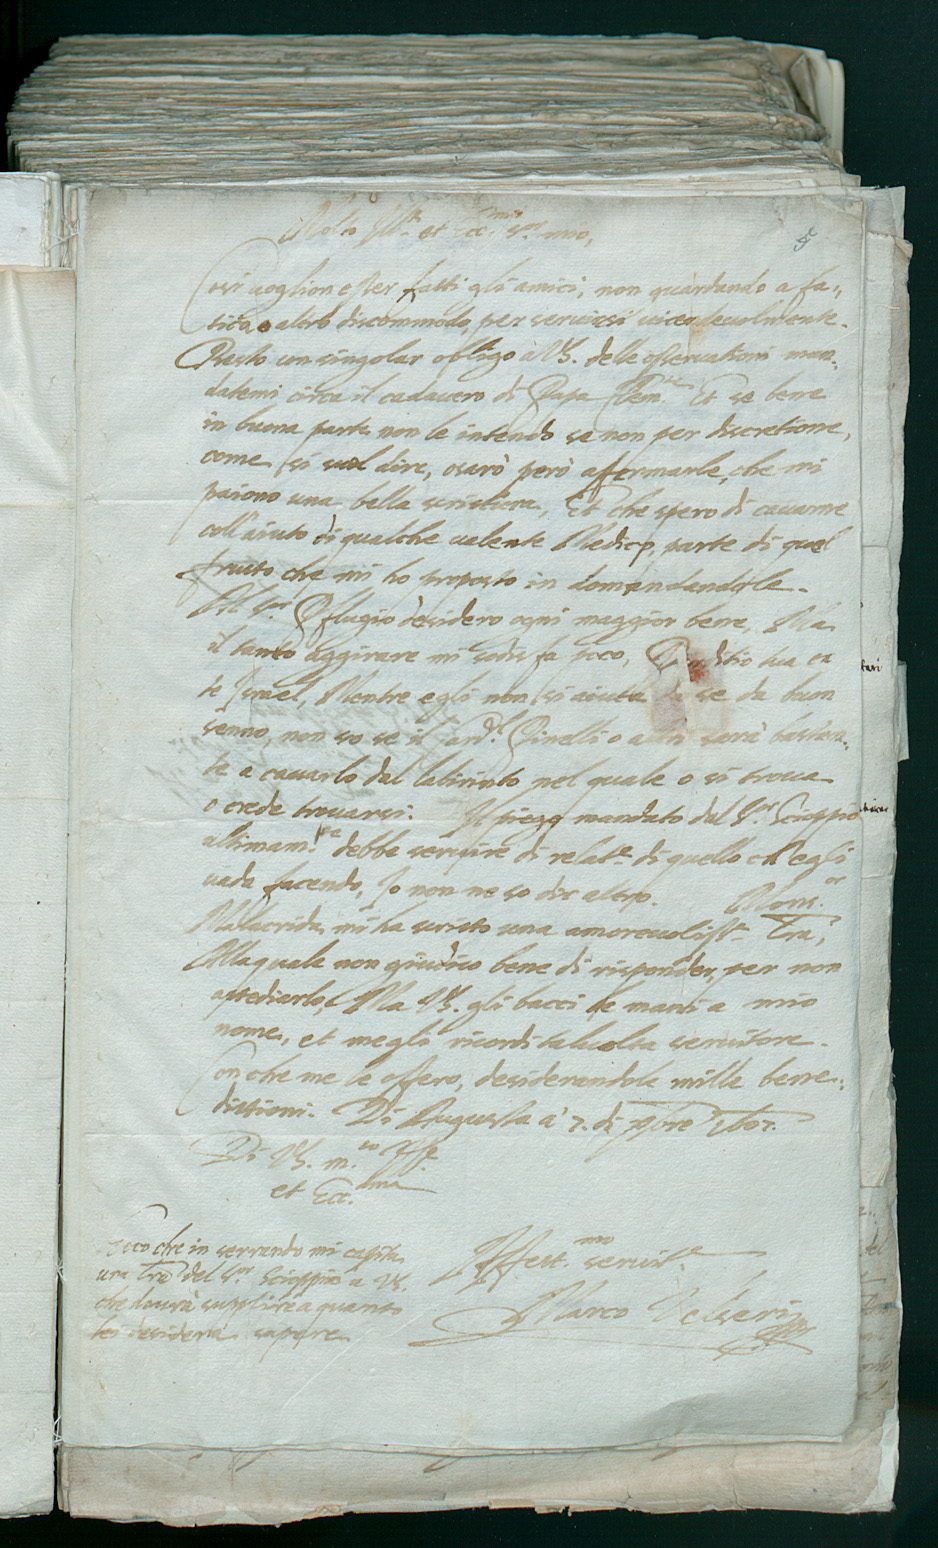 Molto Ill.re et Ecc.mo S.or mio,
Cosi voglion esser fatti gli amici, non guardando a fa-
tica, o altro discommodo, per servirsi vicendevolmente.
Resto con singolar obligo à VS. delle osservationi man-
datemi circa il cadavero di Papa Clem.te Et se bene
in buona parte non le intendo se non per discretione,
come si suol dire, osarò però affermarle, che mi
paiono una bella scrittura, Et che spero di cavarne
coll'aiuto di qualche valente Medico, parte di quel
frutto che mi ho proposto in domandandole.
Al S.or Pflugio desidero ogni maggior bene, Ma
il tanto aggirare mi sodisfa poco, Perditio tua ex
te Israel, Mentre egli non si aiuta da se da buon
senno, non so se il Card.l Pinelli o altri sarà bastan-
te a cavarlo dal labirinto nel quale o si trova
o crede trovarsi. Il piego mandato dal S.or Scioppio
ultimam.te debbe servire di relat.ne di quello ch'egli
vada facendo, Io non ne so dir altro. Mons.or
Malacrida, mi ha scritto una amorevoliss.a lra,
Alla quale non giudico bene di risponder, per non
attediarlo, Ma VS. gli bacci le mani a mio
nome, et me gli ricordi talvolta servitore.
Con che me le offero, desiderandole mille bene-
dittioni. Di Augusta a' 7. di 7bre 1607.
Di VS. m.to Ill.re
et Ecc.ma
Ecco che in serrando mi capita
una lra del S.or Scioppio a VS.
che dovrà supplire a quanto
lei desidera sapere
Affett.mo servit.re
Marco Velseri